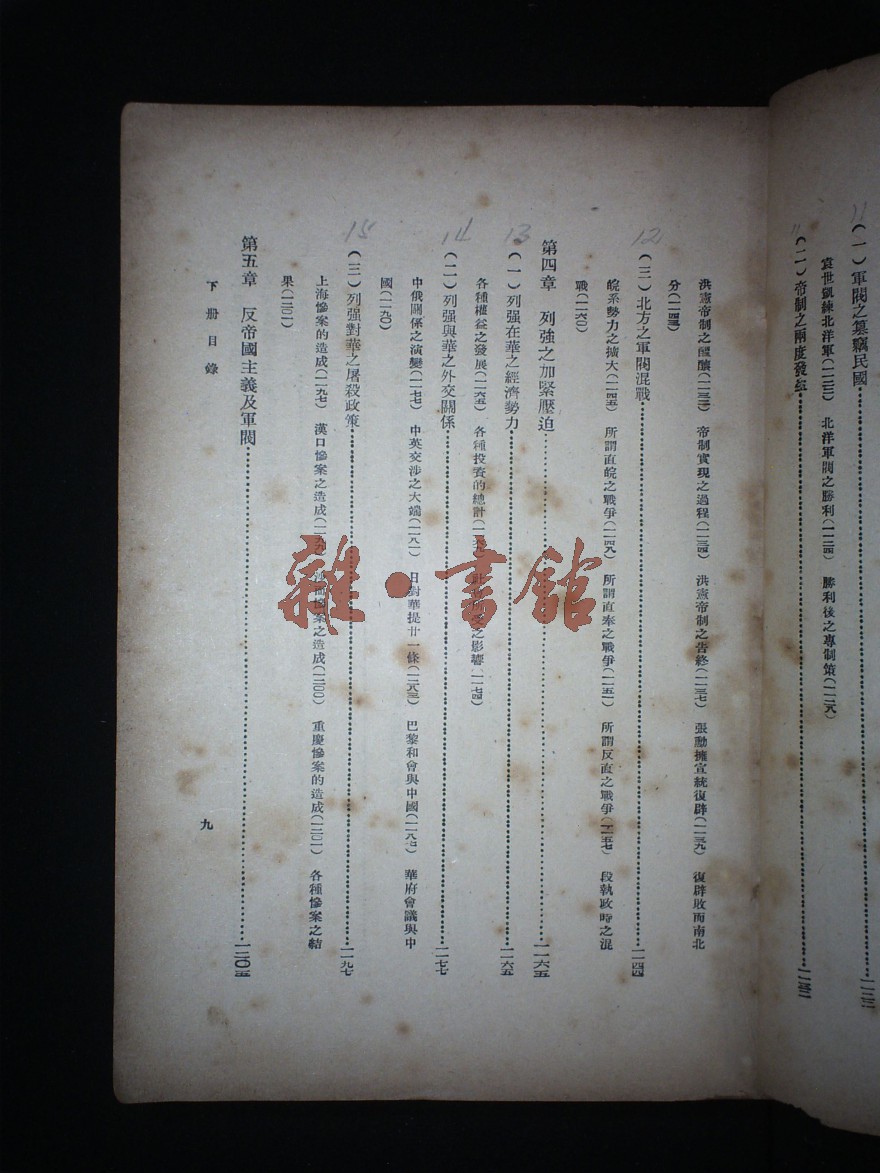 11
(一)軍閥之篡竊民國
袁世凱練北洋軍 北洋軍閥之勝利 勝利後之專制策(一一二八)
11
(二)帝制之兩度發生
洪憲帝制之醞釀(一一三二) 帝制實現之過程(一一三四) 洪憲帝制之告終(一一三七) 張勳擁宣統復辟(一一三九) 復辟敗而南北
分(一一四三)
12
(三)北方之軍閥混戰 一一四四
皖系勢力之擴大(一一四五) 所謂直皖之戰爭(一一四九) 所謂直奉之戰爭(一一五二) 所謂反直之戰爭(一一五七) 段執政時之混
戰(一一六〇)
第四章 列強之加緊壓迫 一一六五
13
(一)列强在華之經濟勢力 一一六五
各種權益之發展(一一六五) 各種投資的總計(一一六九) 之影響(一一七四)
14
(二)列强與華之外交關係 一一七七
中俄關係之演變(一一七七) 中英交涉之大端(一一八一) 日對華提廿一條(一一八三) 巴黎和會與中國(一一八七) 華府會議與中
國(一一九〇)
15
(三)列强對華之屠殺政策 一一九七
上海慘案的造成(一一九七) 漢口慘案之造成(一一九九) 慘案之造成(一二〇〇) 重慶慘案的造成(一二〇一) 各種慘案之結
果(一二〇二)
第五章 反帝國主義及軍閥 一二〇五
下册目錄
九
雜·書館